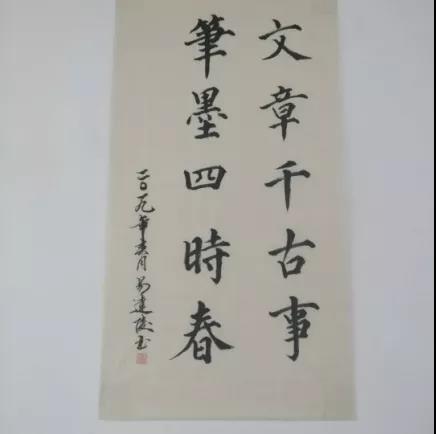 文章千古事
筆墨四時春
二〇一九年亥月 建陵書